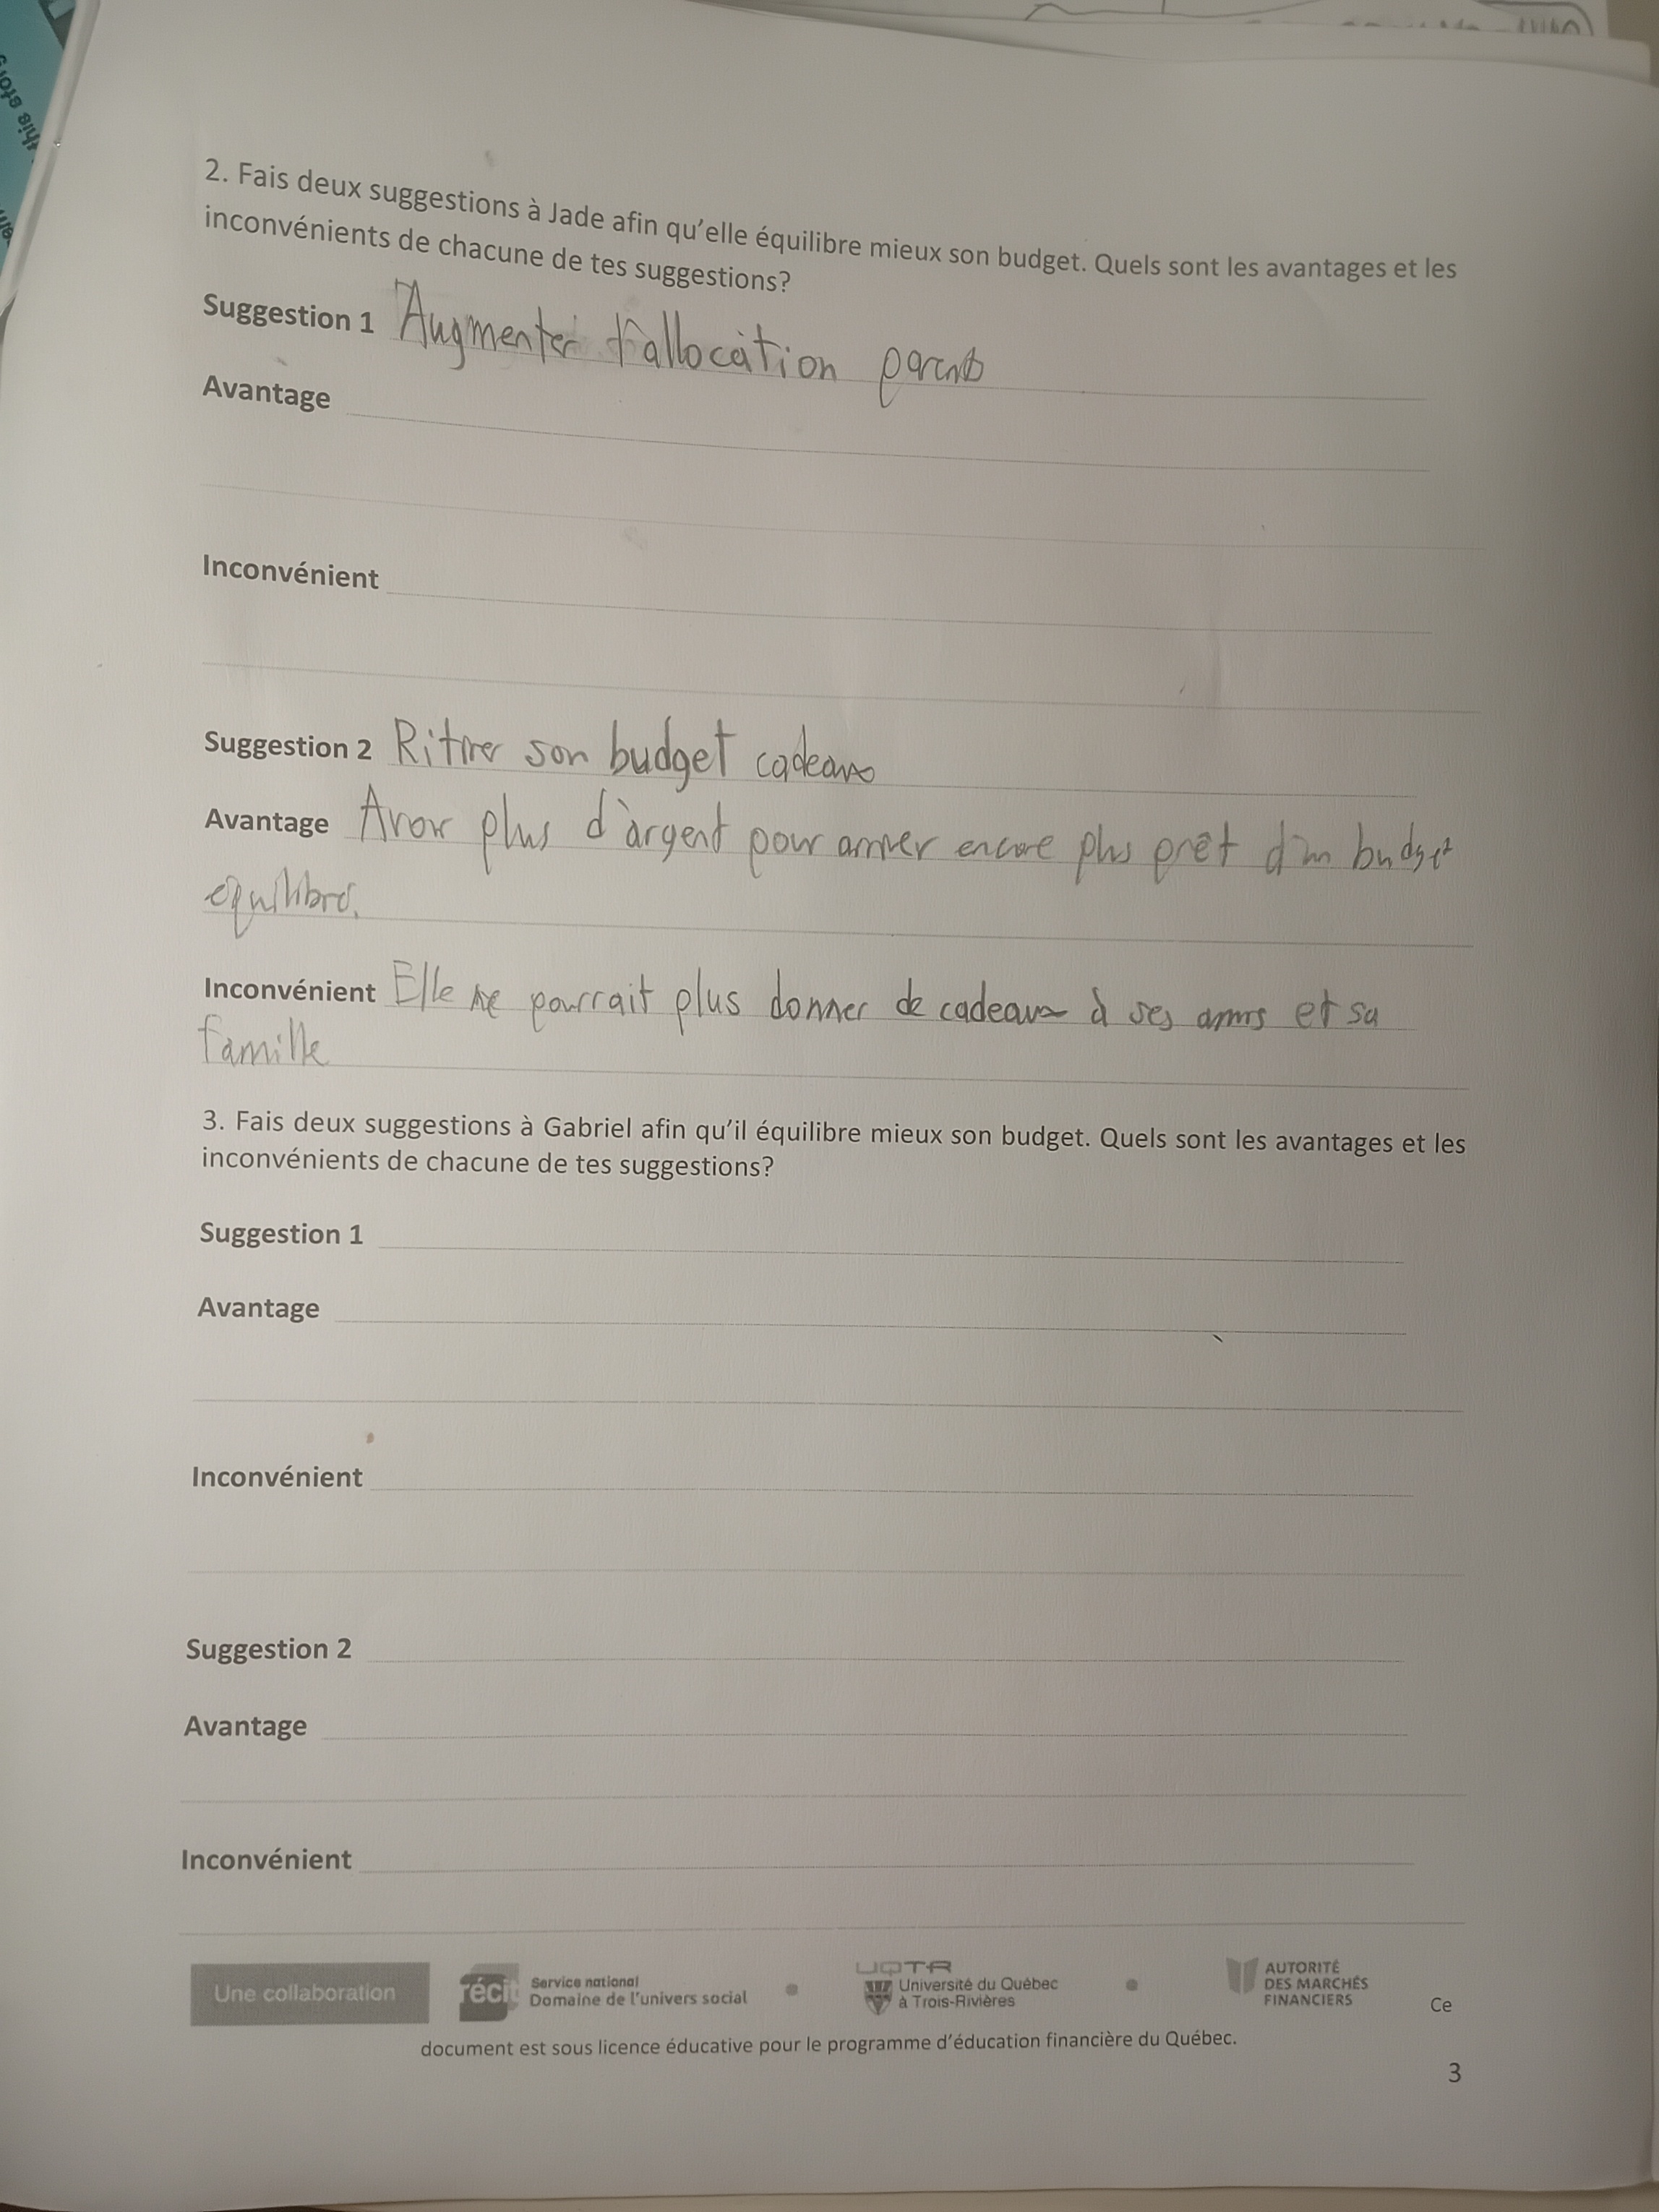 this stor
2. Fais deux suggestions à Jade afin qu'elle équilibre mieux son budget. Quels sont les avantages et les
inconvénients de chacune de tes suggestions?
Suggestion 1 Augmenter d'allocation parents
Avantage
Inconvénient
Suggestion 2 Ritirer son budget cadeaux
Avantage Avoir plus d'argent pour arriver encore plus prêt d'un budget
équilibré.
Inconvénient Elle ne pourrait plus donner de cadeaux à ses amis et sa
famille
3. Fais deux suggestions à Gabriel afin qu'il équilibre mieux son budget. Quels sont les avantages et les
inconvénients de chacune de tes suggestions?
Suggestion 1
Avantage
Inconvénient
Suggestion 2
Avantage
Inconvénient
Une collaboration récit Service national Domaine de l'univers social • UQTR Université du Québec à Trois-Rivières • AUTORITÉ DES MARCHÉS FINANCIERS Ce
document est sous licence éducative pour le programme d'éducation financière du Québec.
3